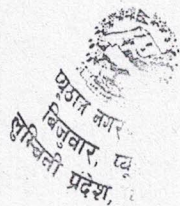 प्यूठान नगर
बिजुवार, प्यू
लुम्बिनी प्रदेश,